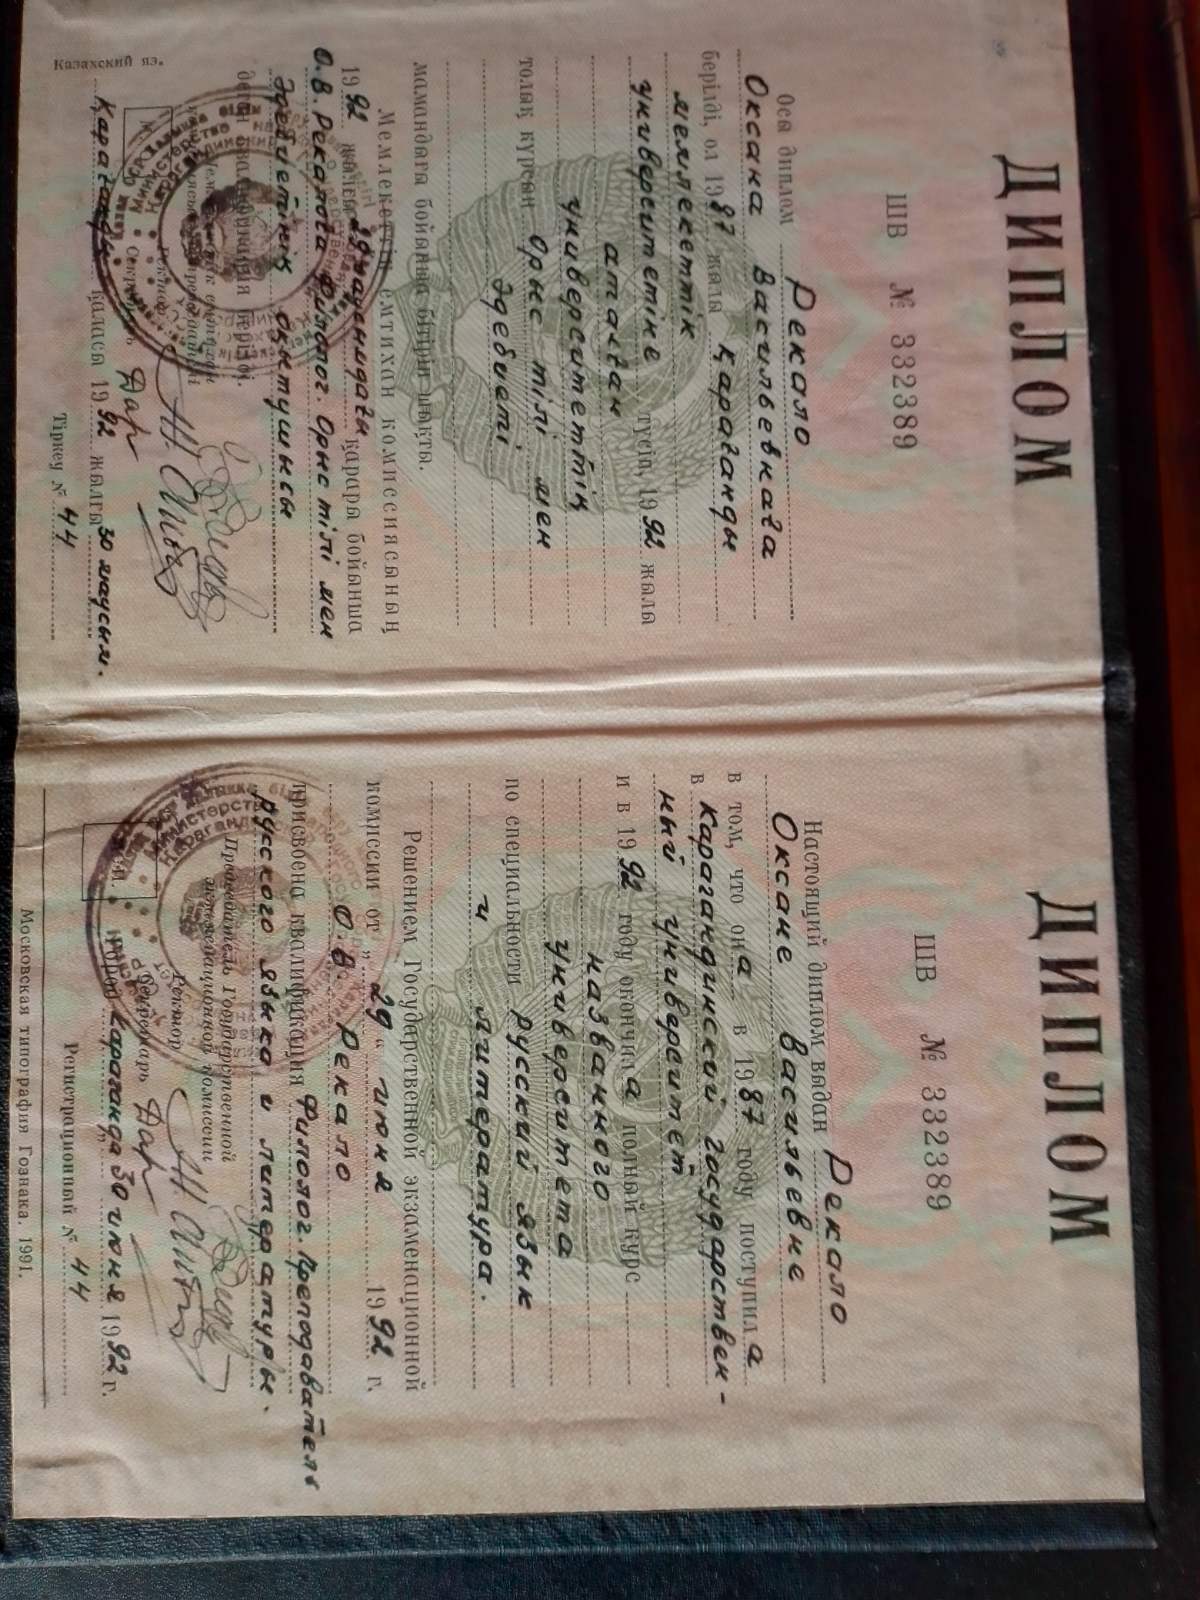 ДИПЛОМ
ШВ № 332389
Осы диплом Рекало
Оксана Васильевнаға
берілді, ол 1987 жылы Қарағанды
мемлекеттік
университетіне түсіп, 1992 жылы
аталған
университеттің
толық курсын Орыс тілі мен
әдебиеті
мамандығы бойынша бітіріп шықты.
Мемлекеттік емтихан комиссиясының
1992 жылғы 29 маусымдағы қарары бойынша
О.В. Рекалоға Филолог. Орыс тілі мен
әдебиетінің оқытушысы
деген квалификация берілді.
Ректор
М.
Секретарь
Қарағанды қаласы 1992 жылғы 30 маусым.
Казахский яз.
Тіркеу № 44
ДИПЛОМ
ШВ № 332389
Настоящий диплом выдан Рекало
Оксане Васильевне
в том, что она в 1987 году поступила
в Карагандинский государствен-
ный университет
и в 1992 году окончила полный курс
названного
университета
по специальности русский язык
и литература.
Решением Государственной экзаменационной
комиссии от „29“ июня 1992 г.
О.В. Рекало
присвоена квалификация Филолог. Преподаватель
русского языка и литературы.
Председатель Государственной
экзаменационной комиссии
Ректор
М.П.
Секретарь
город Караганда 30 июня 1992 г.
Регистрационный № 44
Московская типография Гознака. 1991.